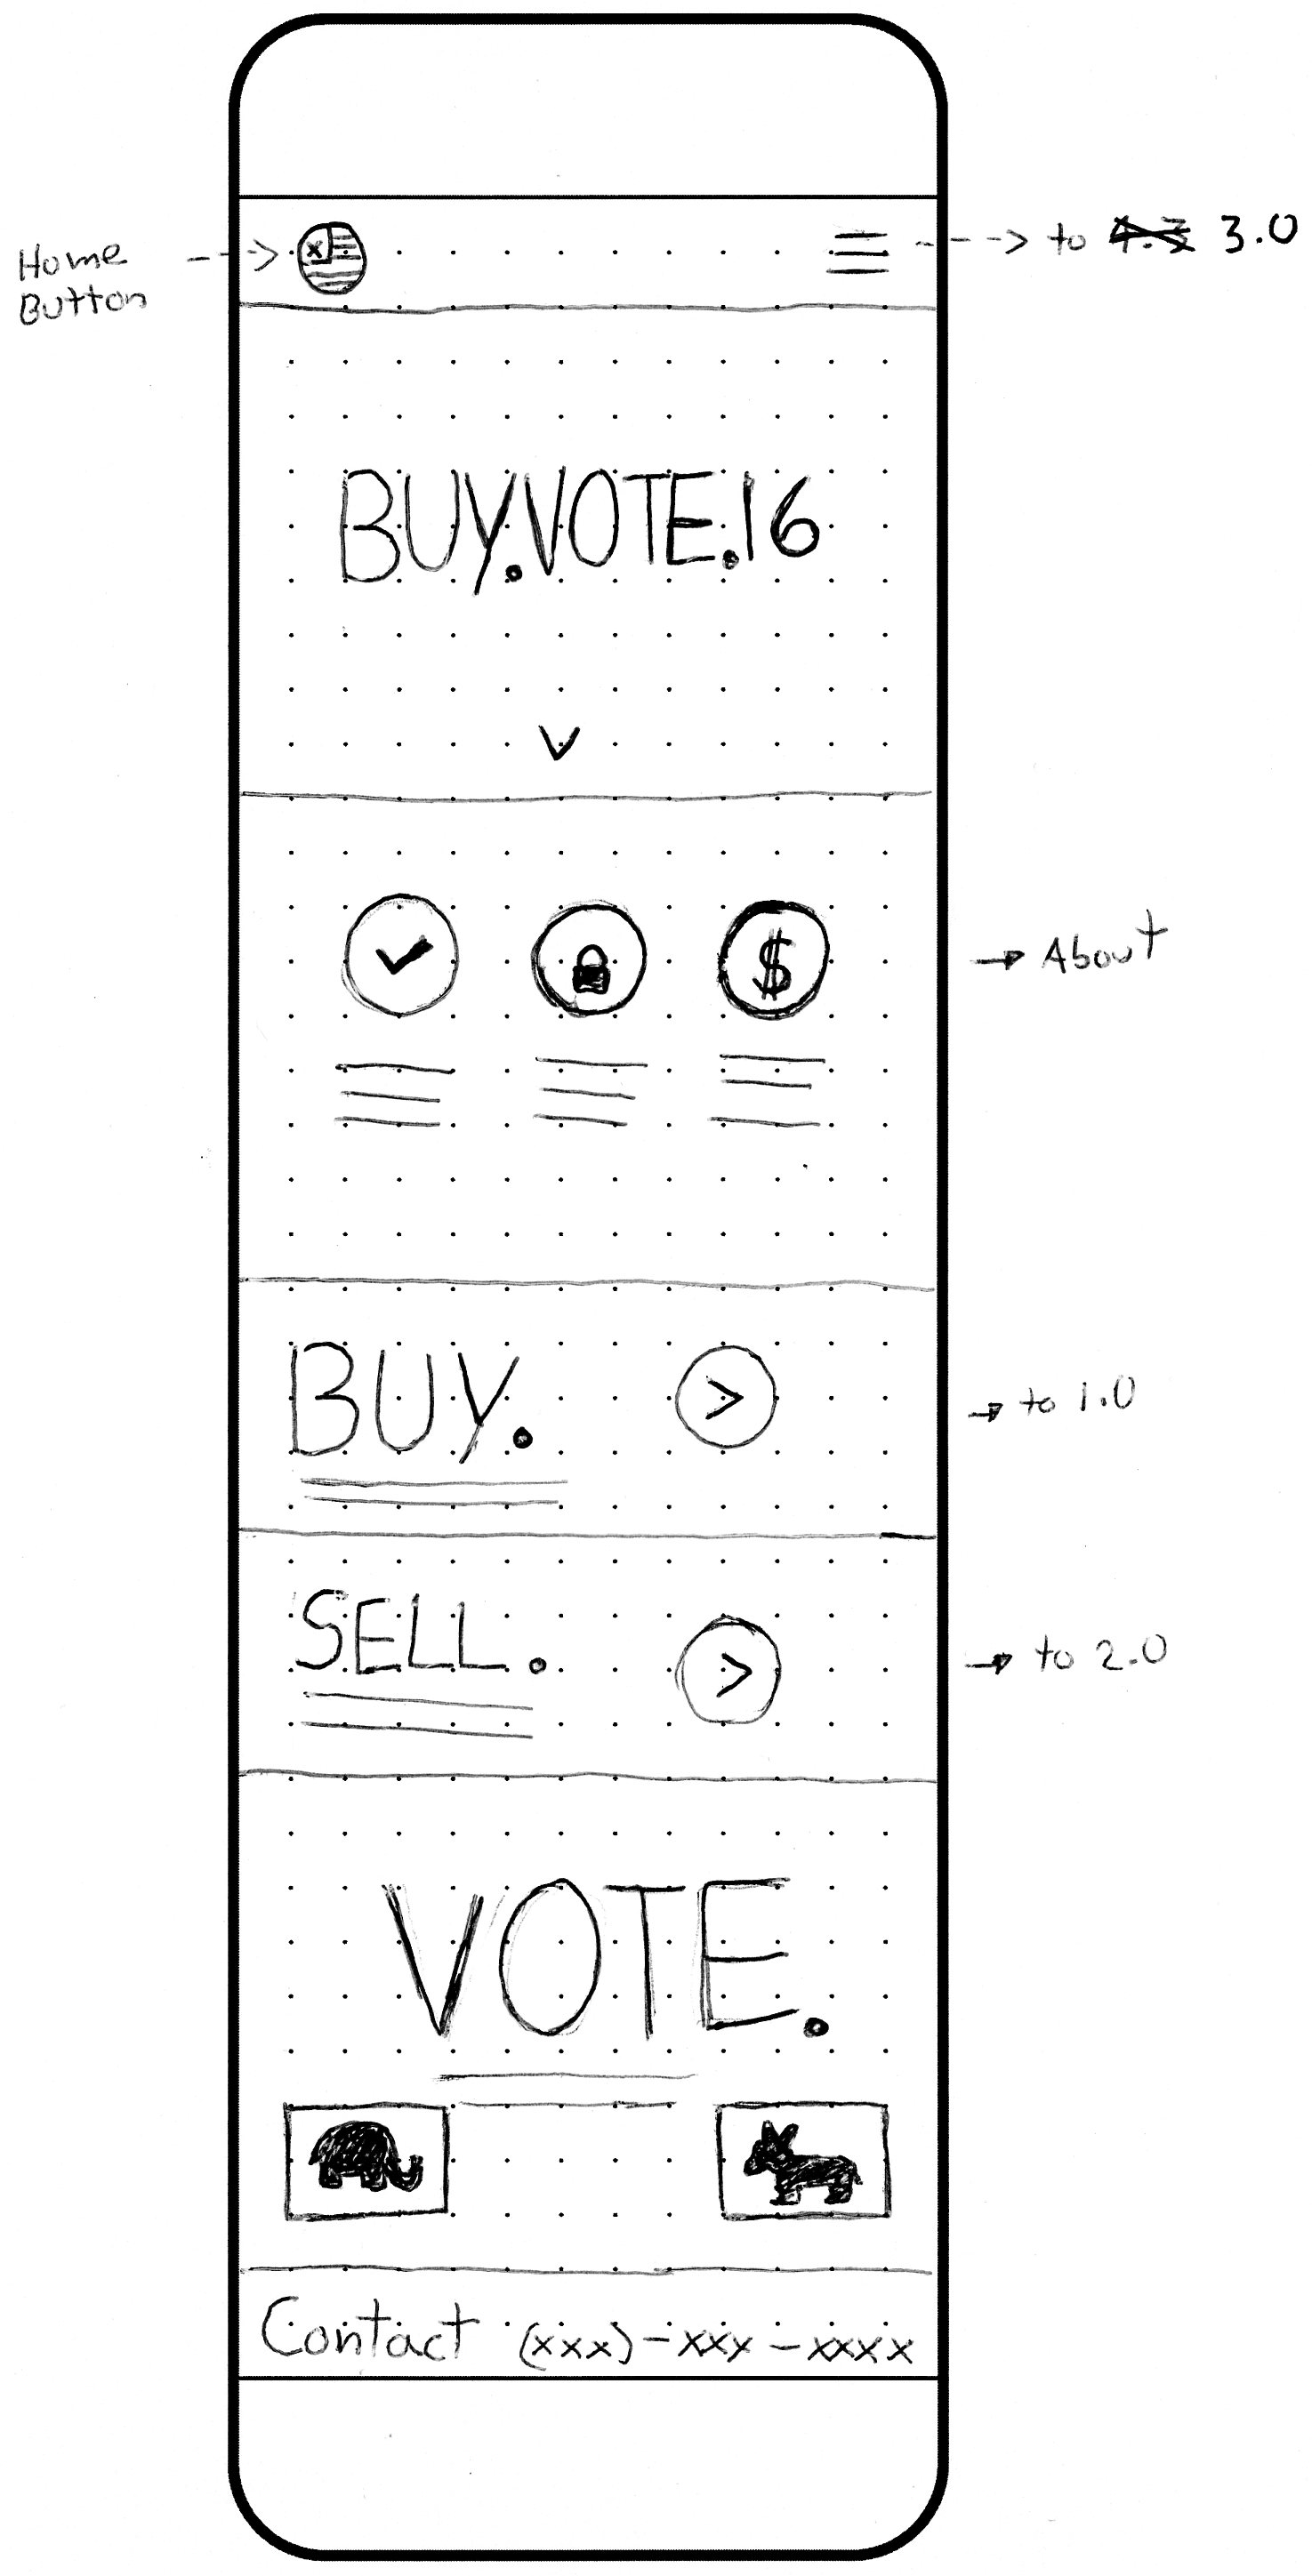 Home
Button
to 3.0
BUY.VOTE.16
$
About
BUY.
to 1.0
SELL.
to 2.0
VOTE.
Contact (xxx)-xxx-xxxx